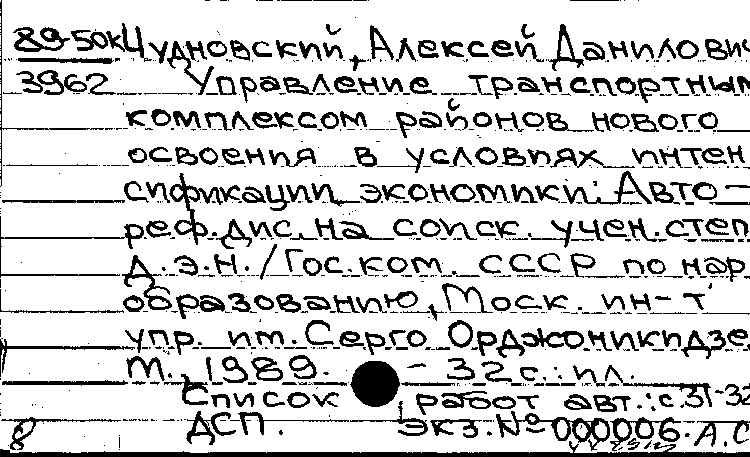 89-50к Чудновский, Алексей Данилович
3962 Управление транспортным
комплексом районов нового
освоения в условиях интен
сификации экономики: Авто-
реф.дис.на соиск. учен.степ
д.э.н./Гос.ком. СССР по нар
образованию, Моск. ин-т
упр. им. Серго Орджоникидзе.
М., 1989. - 32 с.: ил.
Список работ авт.: с.31-32
ДСП. Экз.№ 000006. А.С
8